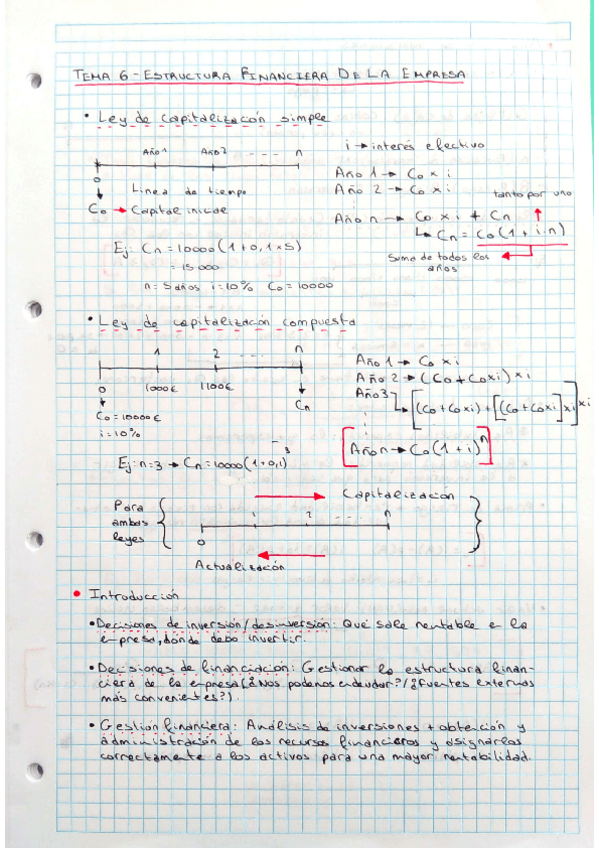 TEMA 6 - ESTRUCTURA FINANCIERA DE LA EMPRESA
• Ley de capitalización simple
Año 1 Año 2 - - - n
0
Línea de tiempo
Co → Capital inicial
i → interés efectivo
Año 1 → Co × i
Año 2 → Co × i
tanto por uno
Año n → Co × i + Cn
↳ Cn = Co(1 + i·n)
Suma de todos los años
Ej: Cn = 10000(1+0,1×5)
= 15.000
n = 5 años i = 10% Co = 10000
• Ley de capitalización compuesta
1 2 . . . . n
0 1000€ 1100€ Cn
Co = 10000€
i = 10%
Año 1 → Co × i
Año 2 → (Co + Co×i) × i
Año 3 ↳ [(Co + Co×i) + [(Co + Co×i] × i] × i
[Año n → Co(1 + i)^n]
Ej: n=3 → Cn = 10000(1+0,1)^3
Para ambas leyes
Capitalización
0 1 2 - - - n
Actualización
• Introducción
• Decisiones de inversión/desinversión: Qué sale rentable e la
empresa, dónde debo invertir.
• Decisiones de financiación: Gestionar la estructura finan-
ciera de la empresa (¿Nos podemos endeudar?/¿Fuentes externas
más convenientes?).
• Gestión financiera: Análisis de inversiones + obtención y
administración de los recursos financieros y asignarlos
correctamente a los activos para una mayor rentabilidad.